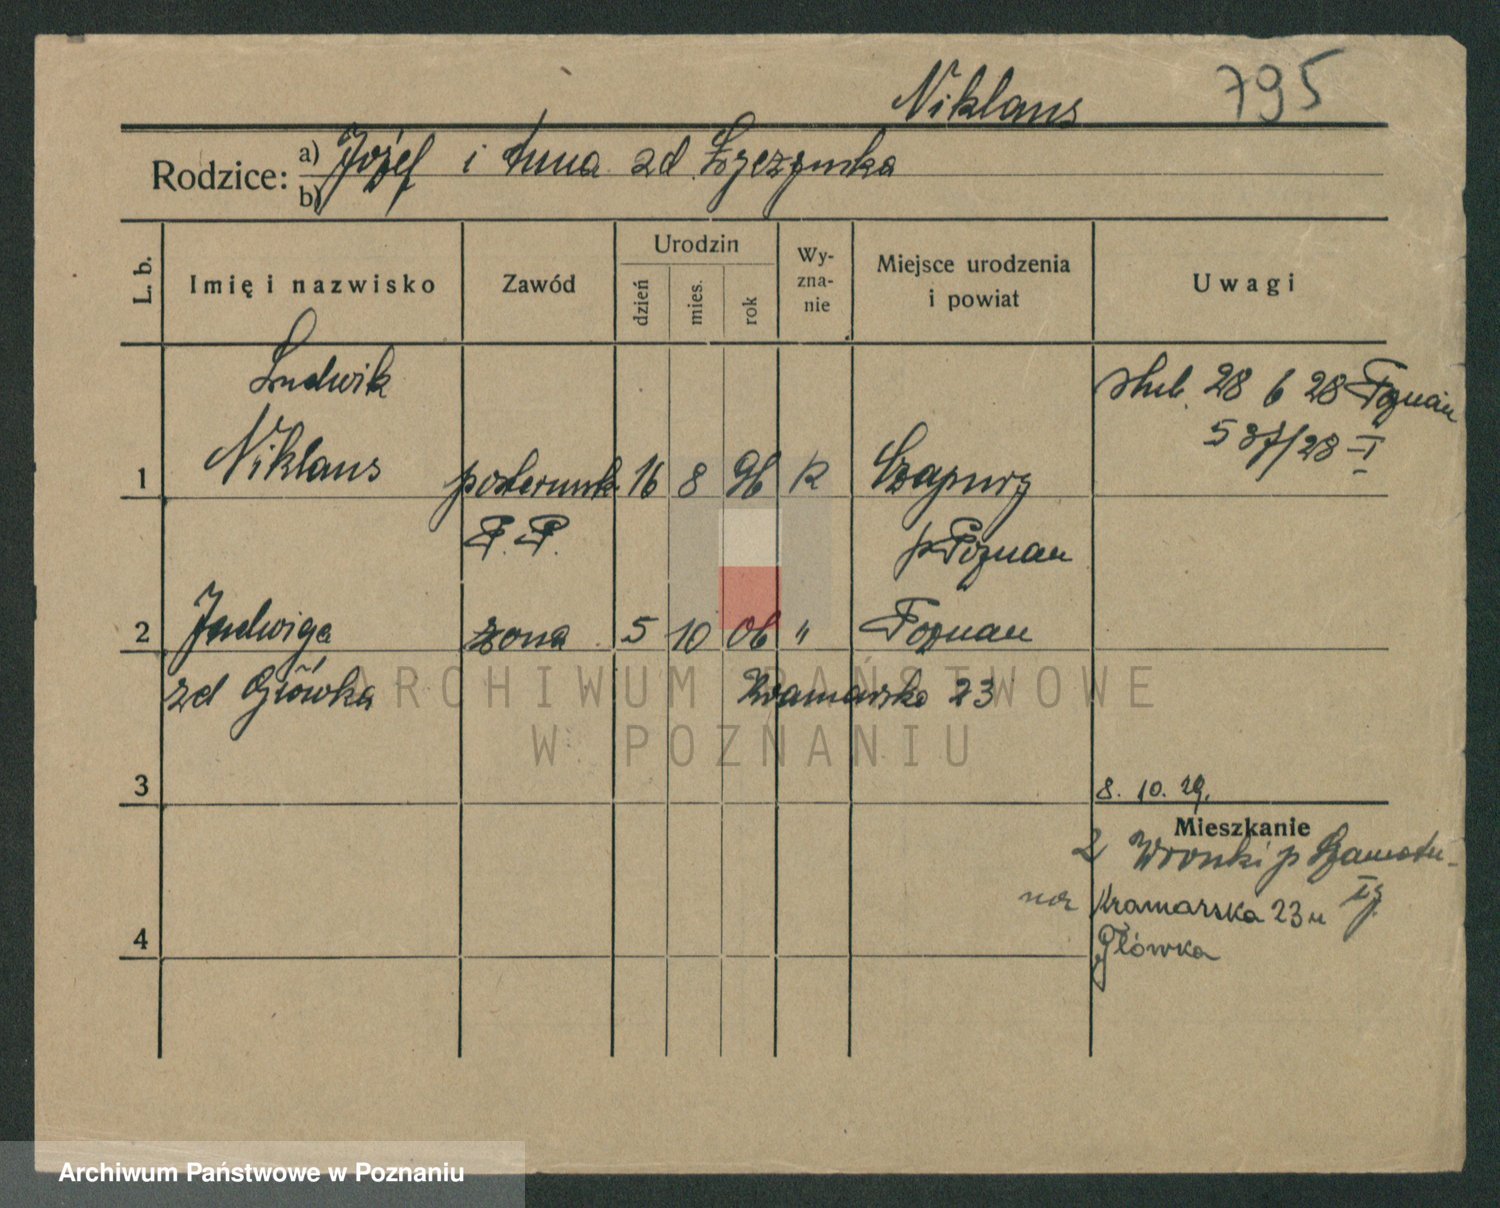 Niklaus 795
Rodzice: a) Józef i Anna zd
b)
L. b.
Imię i nazwisko
Zawód
Urodzin
dzień
mies.
rok
Wy-
zna-
nie
Miejsce urodzenia
i powiat
Uwagi
Ludwik
Niklaus
1
posterunk
P. P.
16 8 96
Czapury
p Poznań
ślub. 28 6 28 Poznań
537/28 I
2
Jadwiga
zd Główka
żona
5 10 06 "
Poznań
Kramarska 23
3
8. 10. 29.
Mieszkanie
z Wronki p Szamotu-
Kramarska 23 u
Główka
4
ARCHIWUM PAŃSTWOWE
W POZNANIU
Archiwum Państwowe w Poznaniu